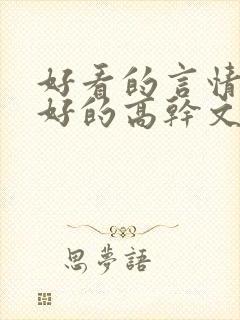 好看的言情
好的高幹文
思夢語